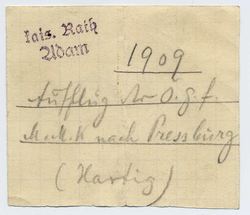 kais. Rath
Adam
1909
Ausflug der O.g.f.
M.u.K nach Pressburg
(Hartig)